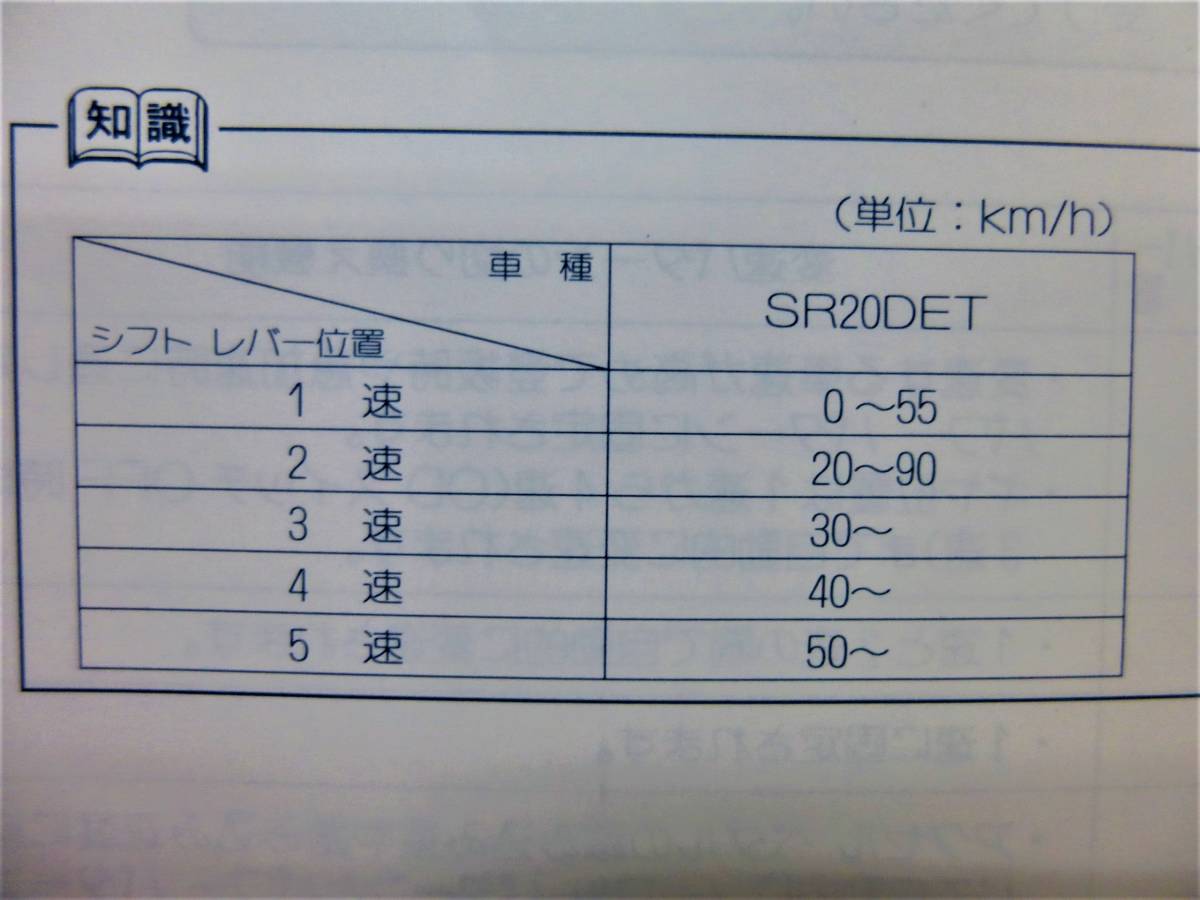 知識
(単位：km/h)
車種
SR20DET
シフト レバー位置
1 速 0～55
2 速 20～90
3 速 30～
4 速 40～
5 速 50～